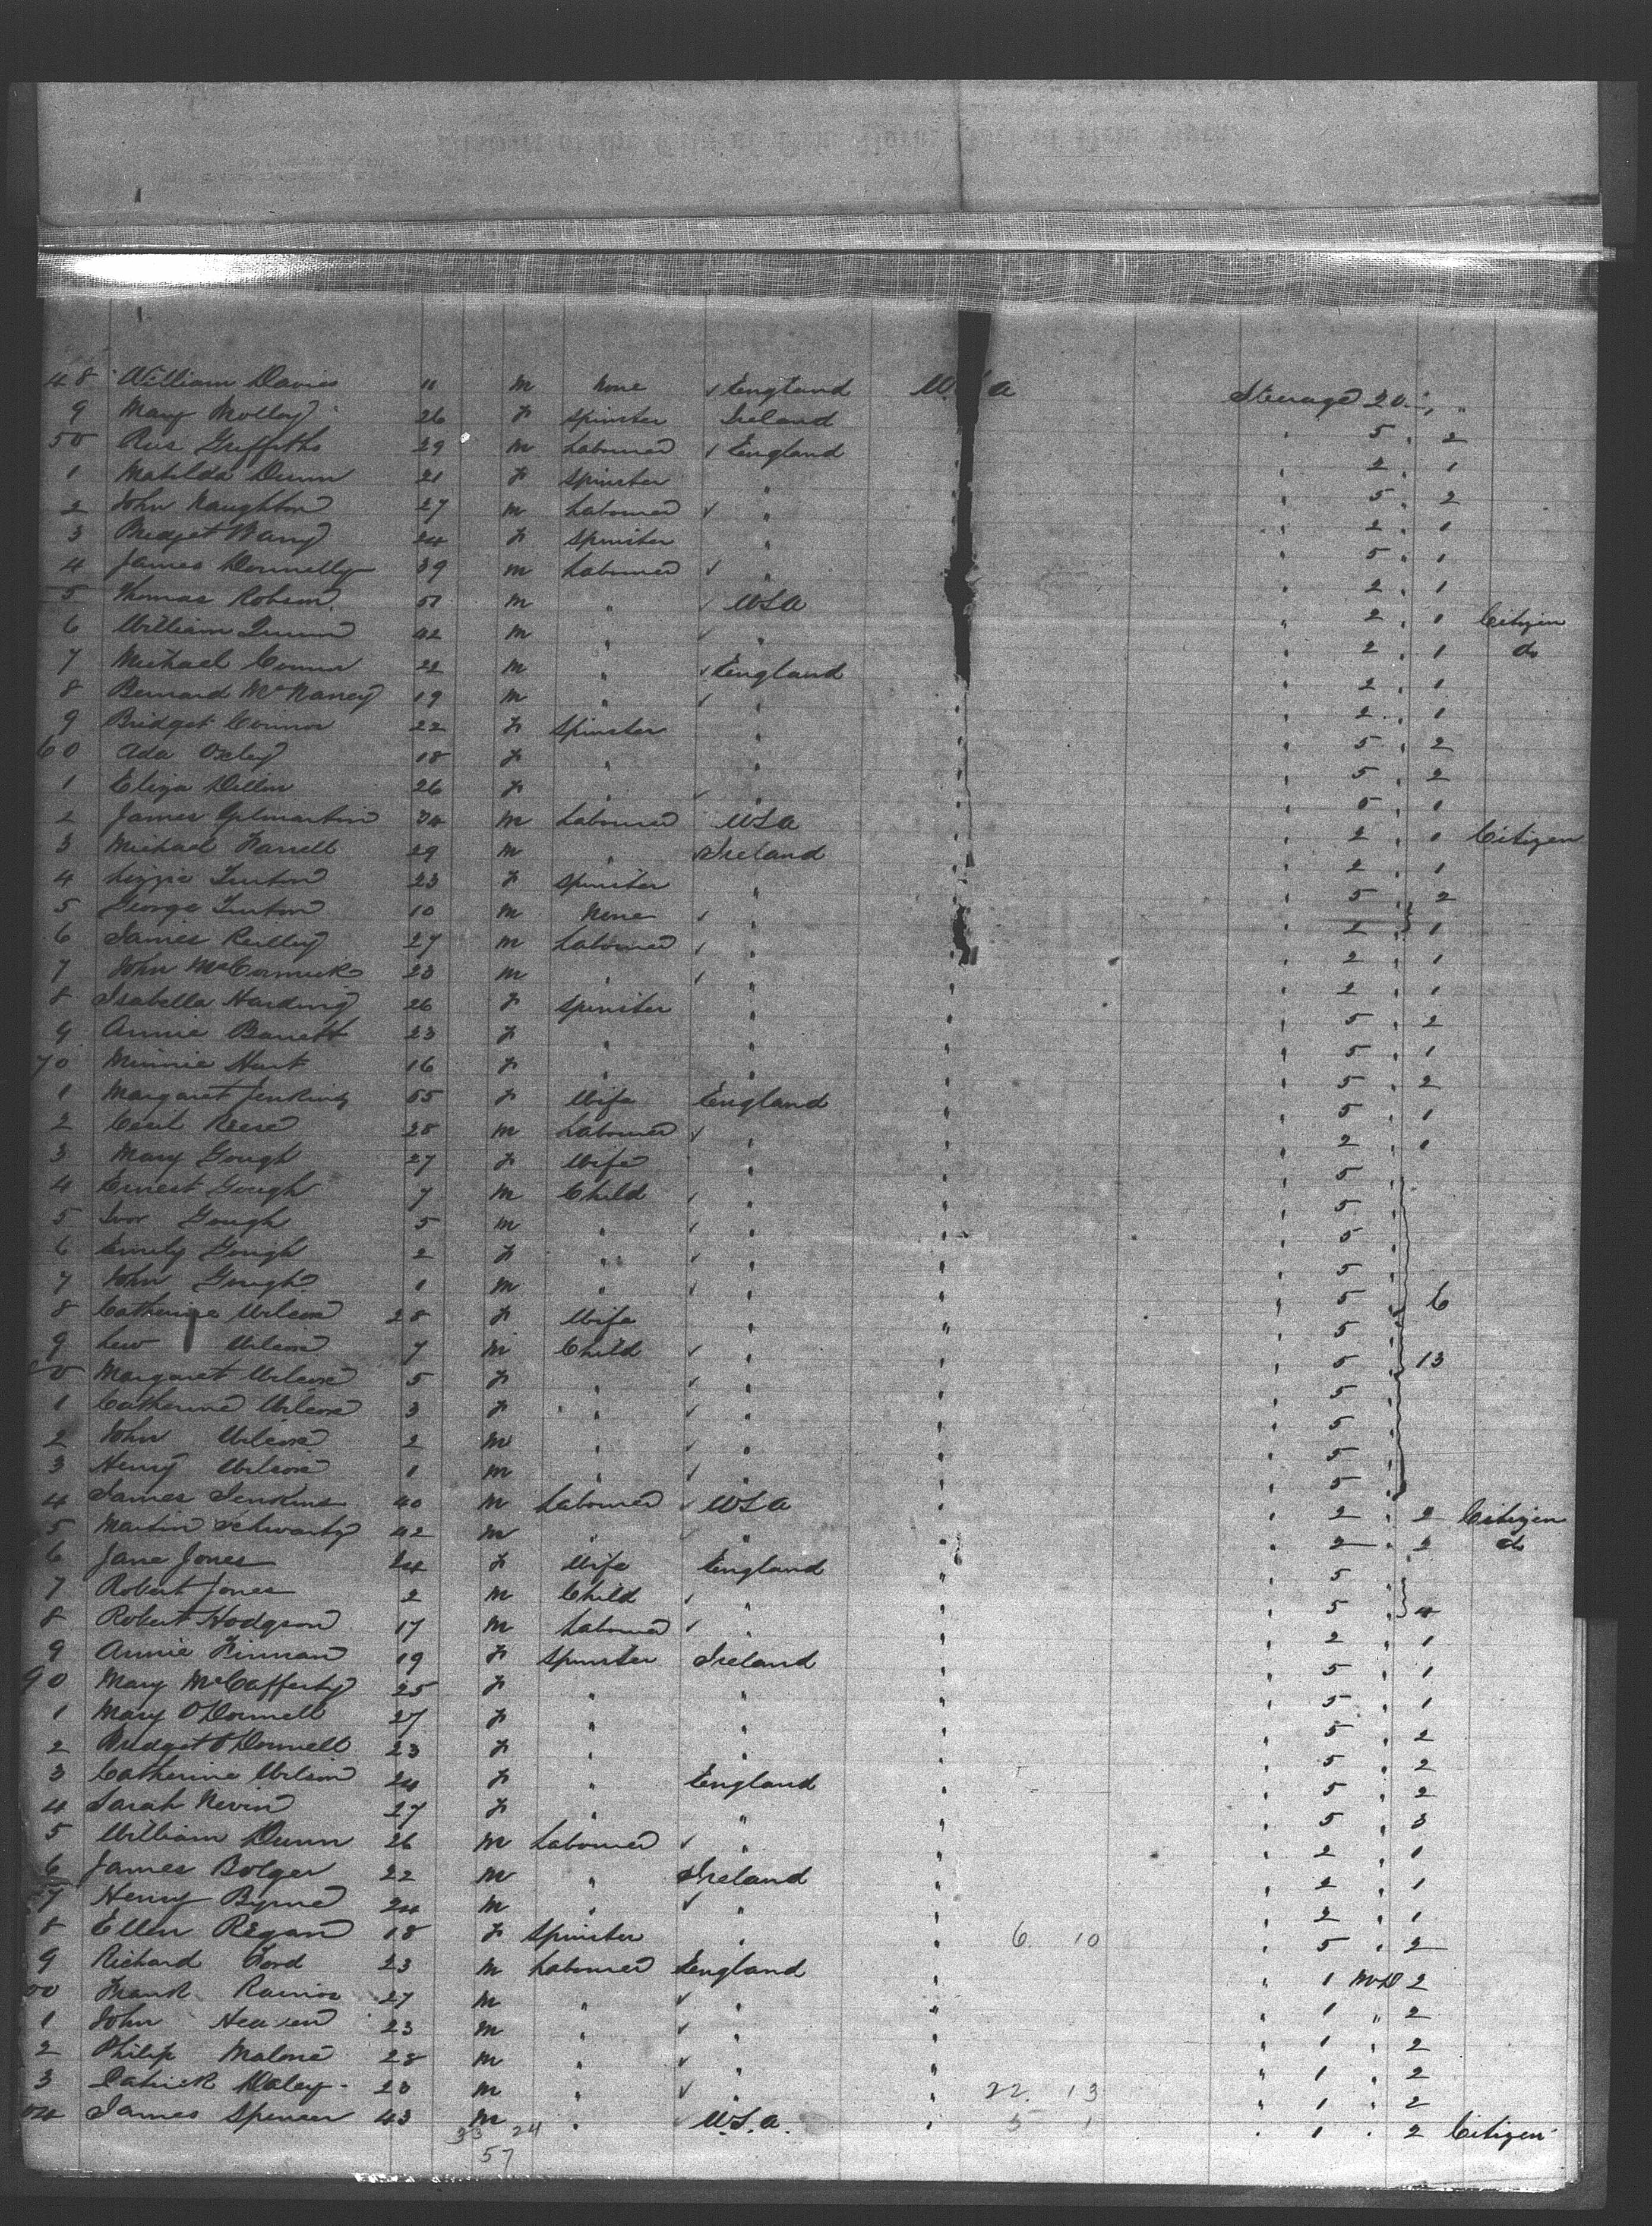 48 William Davies 11 m None ✓ England U.S.A Steerage 20 " "
9 Mary Molloy 26 f Spinster Ireland " " 5 " 2
50 Rees Griffiths 29 m Labourer ✓ England " " 2 " 1
1 Matilda Dunn 21 f Spinster " " " 5 " 2
2 John Naughton 27 m Labourer ✓ " " " 2 " 1
3 Bridget 24 f Spinster " " " 5 " 1
4 James Donnelly 39 m Labourer ✓ " " " 2 " 1
5 Thomas Robson m " ✓ USA " " 2 " 1 Citizen
6 William Quinn 42 m " ✓ " " " 2 " 1 do
7 Michael Connor 22 m " ✓ England " " 2 " 1
8 Bernard McNaney 19 m " ✓ " " " 2 " 1
9 Bridget Connor 22 f Spinster " " " 5 " 2
60 Ada Oxley 18 f " " " " 5 " 2
1 Eliza Dillon 26 f " ✓ " " " 5 " 1
2 James Gilmartin 34 m Labourer USA " " 2 " 1 Citizen
3 Michael Farrell 29 m " ✓ Ireland " " 2 " 1
4 Lizzie 23 f Spinster " " " 5 " 2
5 George 10 m None ✓ " " " 2 " 1
6 James Reilly 27 m Labourer ✓ " " " 2 " 1
7 John McCormick 23 m " ✓ " " " 2 " 1
8 Isabella Harding 26 f Spinster " " " 5 " 2
9 Annie Barrett 23 f " " " " 5 " 1
70 Minnie Hart 16 f " " " " 5 " 2
1 Margaret Jenkins 55 f Wife England " " 5 " 1
2 Cecil Reese 28 m Labourer ✓ " " " 2 " 1
3 Mary Gough 27 f Wife " " " 5 "
4 Ernest Gough 7 m Child ✓ " " " 5 "
5 Ivor Gough 5 m " ✓ " " " 5 "
6 Emily Gough 2 f " ✓ " " " 5 "
7 John Gough 1 m " ✓ " " " 5 " 6
8 Catherine Wilcox 28 f Wife " " " 5 "
9 Lew Wilcox 7 m Child ✓ " " " 5 " 13
80 Margaret Wilcox 5 f " ✓ " " " 5 "
1 Catherine Wilcox 3 f " ✓ " " " 5 "
2 John Wilcox 2 m " ✓ " " " 5 "
3 Henry Wilcox 1 m " ✓ " " " 5 "
4 James Jenkins 40 m Labourer ✓ USA " " 2 " 2 Citizen
5 Martin Schwartz 42 m " ✓ " " " 2 " 2 do
6 Jane Jones 24 f Wife England " " 5 "
7 Robert Jones 2 m Child ✓ " " " 5 " 4
8 Robert Hodgson 17 m Labourer ✓ " " " 2 " 1
9 Annie Finnan 19 f Spinster Ireland " " 5 " 1
90 Mary McCafferty 25 f " " " " 5 " 1
1 Mary O'Donnell 27 f " " " " 5 " 2
2 Bridget O'Donnell 23 f " " " " 5 " 2
3 Catherine Wilson 24 f " England " " 5 " 2
4 Sarah Nevin 27 f " " " " 5 " 3
5 William Dunn 26 m Labourer ✓ " " " 2 " 1
6 James Bolger 22 m " Ireland " " 2 " 1
7 Henry Byrne 24 m " ✓ " " " 2 " 1
8 Ellen Regan 18 f Spinster " " 6 10 " 5 " 2
9 Richard Ford 23 m Labourer England " " 1 2
00 Frank 27 m " ✓ " " " 1 " 2
1 John 23 m " ✓ " " " 1 " 2
2 Philip Malone 28 m " ✓ " " " 1 " 2
3 Patrick Daley 23 m " ✓ " " 22 13 " 1 " 2
04 James Spencer 43 m " ✓ U.S.A. " 5 1 " 1 " 2 Citizen
33 24
57